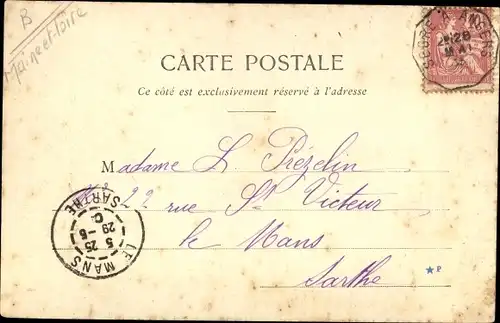 B
Maine et Loire
CARTE POSTALE
Ce côté est exclusivement réservé à l'adresse
Madame L. Prézelin
22 rue St Victeur
le Mans
Sarthe
LE MANS
5 25
29 - 5
SARTHE
10
★ P